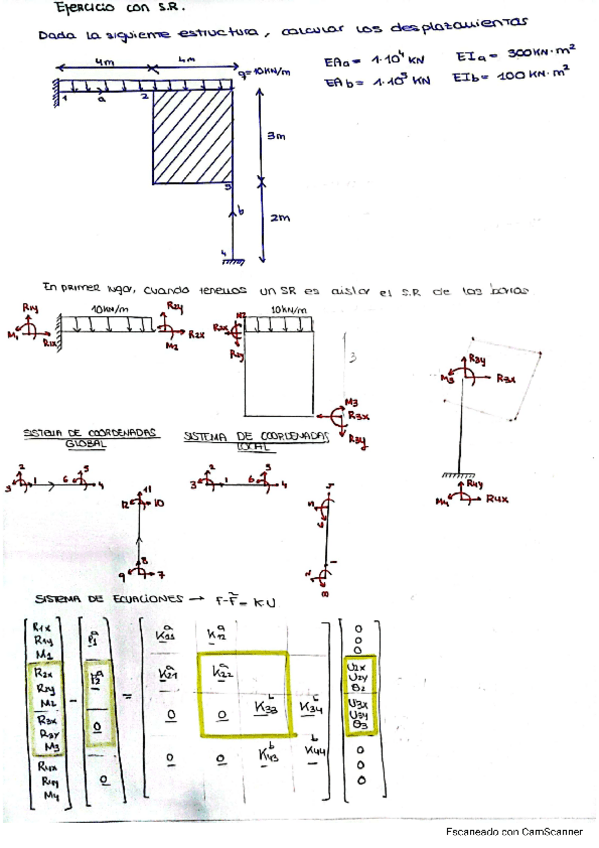 Ejercicio con S.R.
Dada la siguiente estructura, calcular los desplazamientos
4m
4m
q=10KN/m
EAa = 1·10⁴ KN
EIa = 300KN·m²
EAb = 1·10⁵ KN
EIb = 100KN·m²
1
a
2
3m
3
b
2m
4
En primer lugar, cuando tenemos un SR es aislar el S.R. de las barras
R1y
M1
R1x
10KN/m
R2y
R2x
M2
R2x
M2
R2y
10KN/m
3
M3
R3x
R3y
R3y
M3
R3x
R4y
M4
R4x
SISTEMA DE COORDENADAS
GLOBAL
SISTEMA DE COORDENADAS
LOCAL
2
3
1
6
5
4
11
12
10
8
9
7
2
3
1
6
5
4
SISTEMA DE ECUACIONES → F-F̃ = K·U
R1x
R1y
M1
R2x
R2y
M2
R3x
R3y
M3
R4x
R4y
M4
-
0
0
=
K11ᵃ K12ᵃ
K21ᵃ K22ᵃ
0 0 K33ᵇ K34ᵇ
0 0 K43ᵇ K44ᵇ
0
0
0
U2x
U2y
θ2
U3x
U3y
θ3
0
0
0
Escaneado con CamScanner